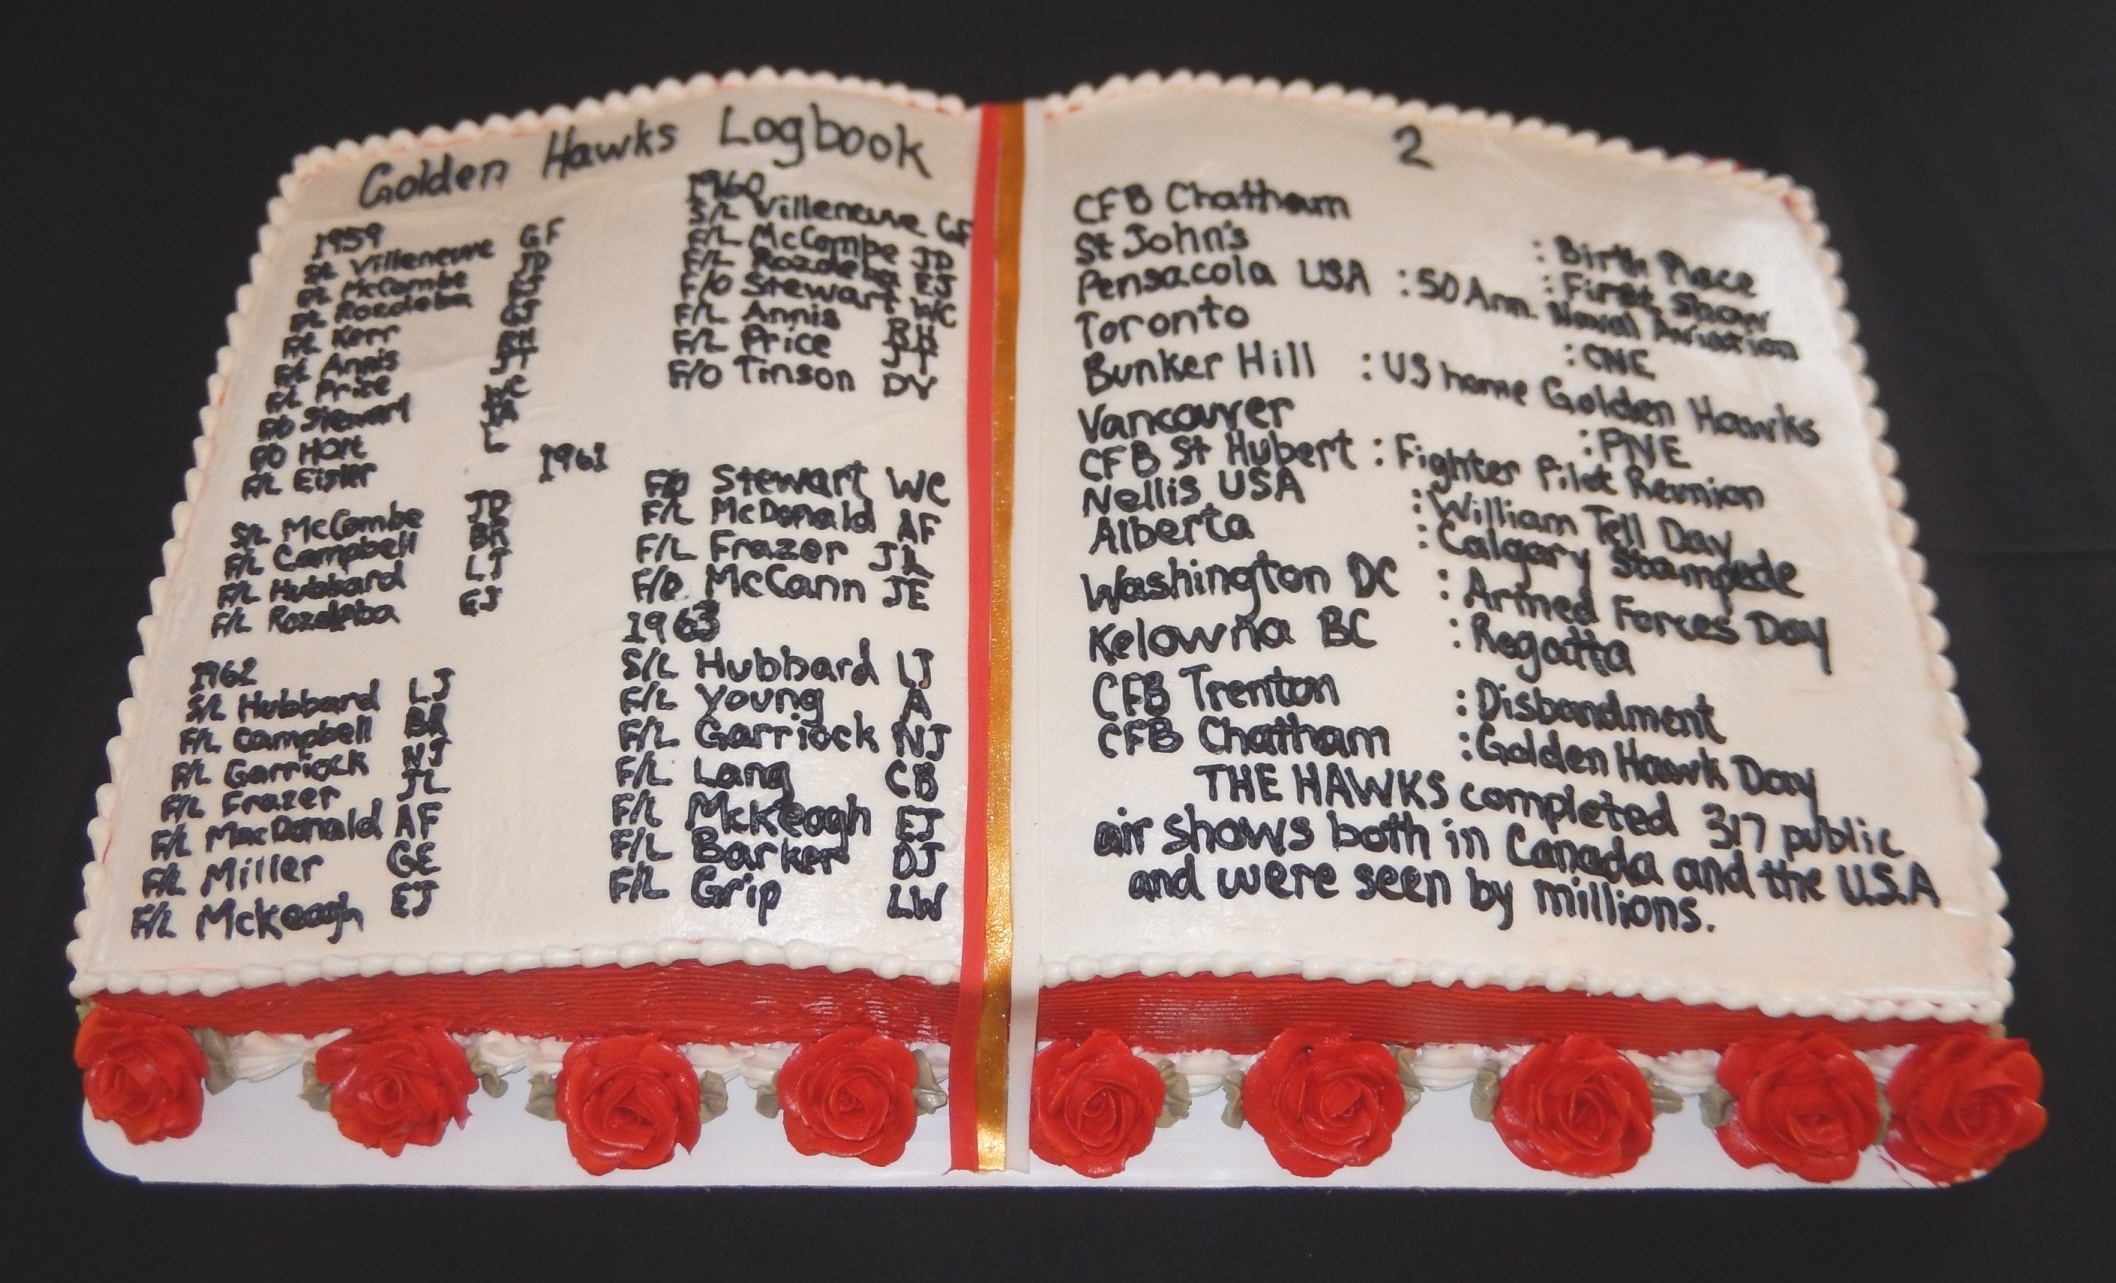 Golden Hawks Logbook
1959
S/L Villeneuve GF
F/L McCombe JD
F/L Rozdeba EJ
F/L Kerr
F/L Annis RH
F/L Price JT
F/O Stewart WC
F/O Hart
F/L Eisler L
1960
S/L Villeneuve GF
F/L McCombe JD
F/L Rozdeba EJ
F/O Stewart WC
F/L Annis RH
F/L Price JT
F/O Tinson DV
1961
S/L McCombe JD
F/L Campbell BR
F/L Hubbard LJ
F/L Rozdeba EJ
F/O Stewart WC
F/L McDonald AF
F/L Frazer JL
F/O McCann JE
1962
S/L Hubbard LJ
F/L Campbell BR
F/L Garriock NJ
F/L Frazer JL
F/L MacDonald AF
F/L Miller GE
F/L McKeogh EJ
1963
S/L Hubbard LJ
F/L Young A
F/L Garriock NJ
F/L Lang CB
F/L McKeogh EJ
F/L Barker DJ
F/L Grip LW
2
CFB Chatham : Birth Place
St John's : First Show
Pensacola USA : 50 Ann. Naval Aviation
Toronto : CNE
Bunker Hill : US home Golden Hawks
Vancouver : PNE
CFB St Hubert : Fighter Pilot Reunion
Nellis USA : William Tell Day
Alberta : Calgary Stampede
Washington DC : Armed Forces Day
Kelowna BC : Regatta
CFB Trenton : Disbandment
CFB Chatham : Golden Hawk Day
THE HAWKS completed 317 public
air shows both in Canada and the U.S.A
and were seen by millions.